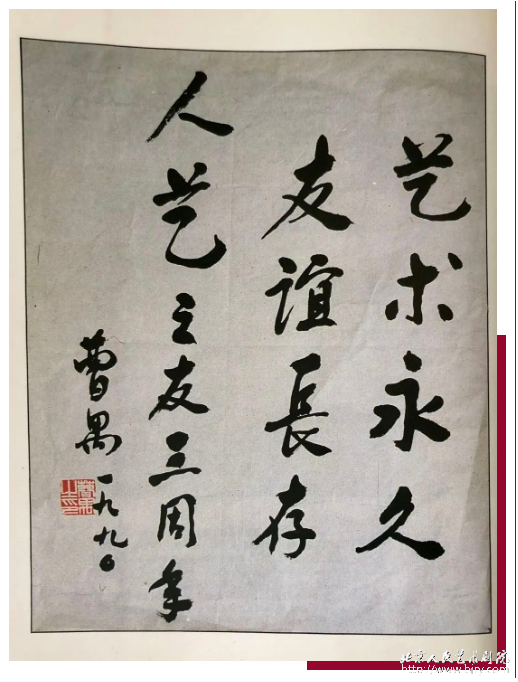 艺术永久
友谊長存
人艺之友三周年
曹禺 一九九〇
北京人民艺术剧院